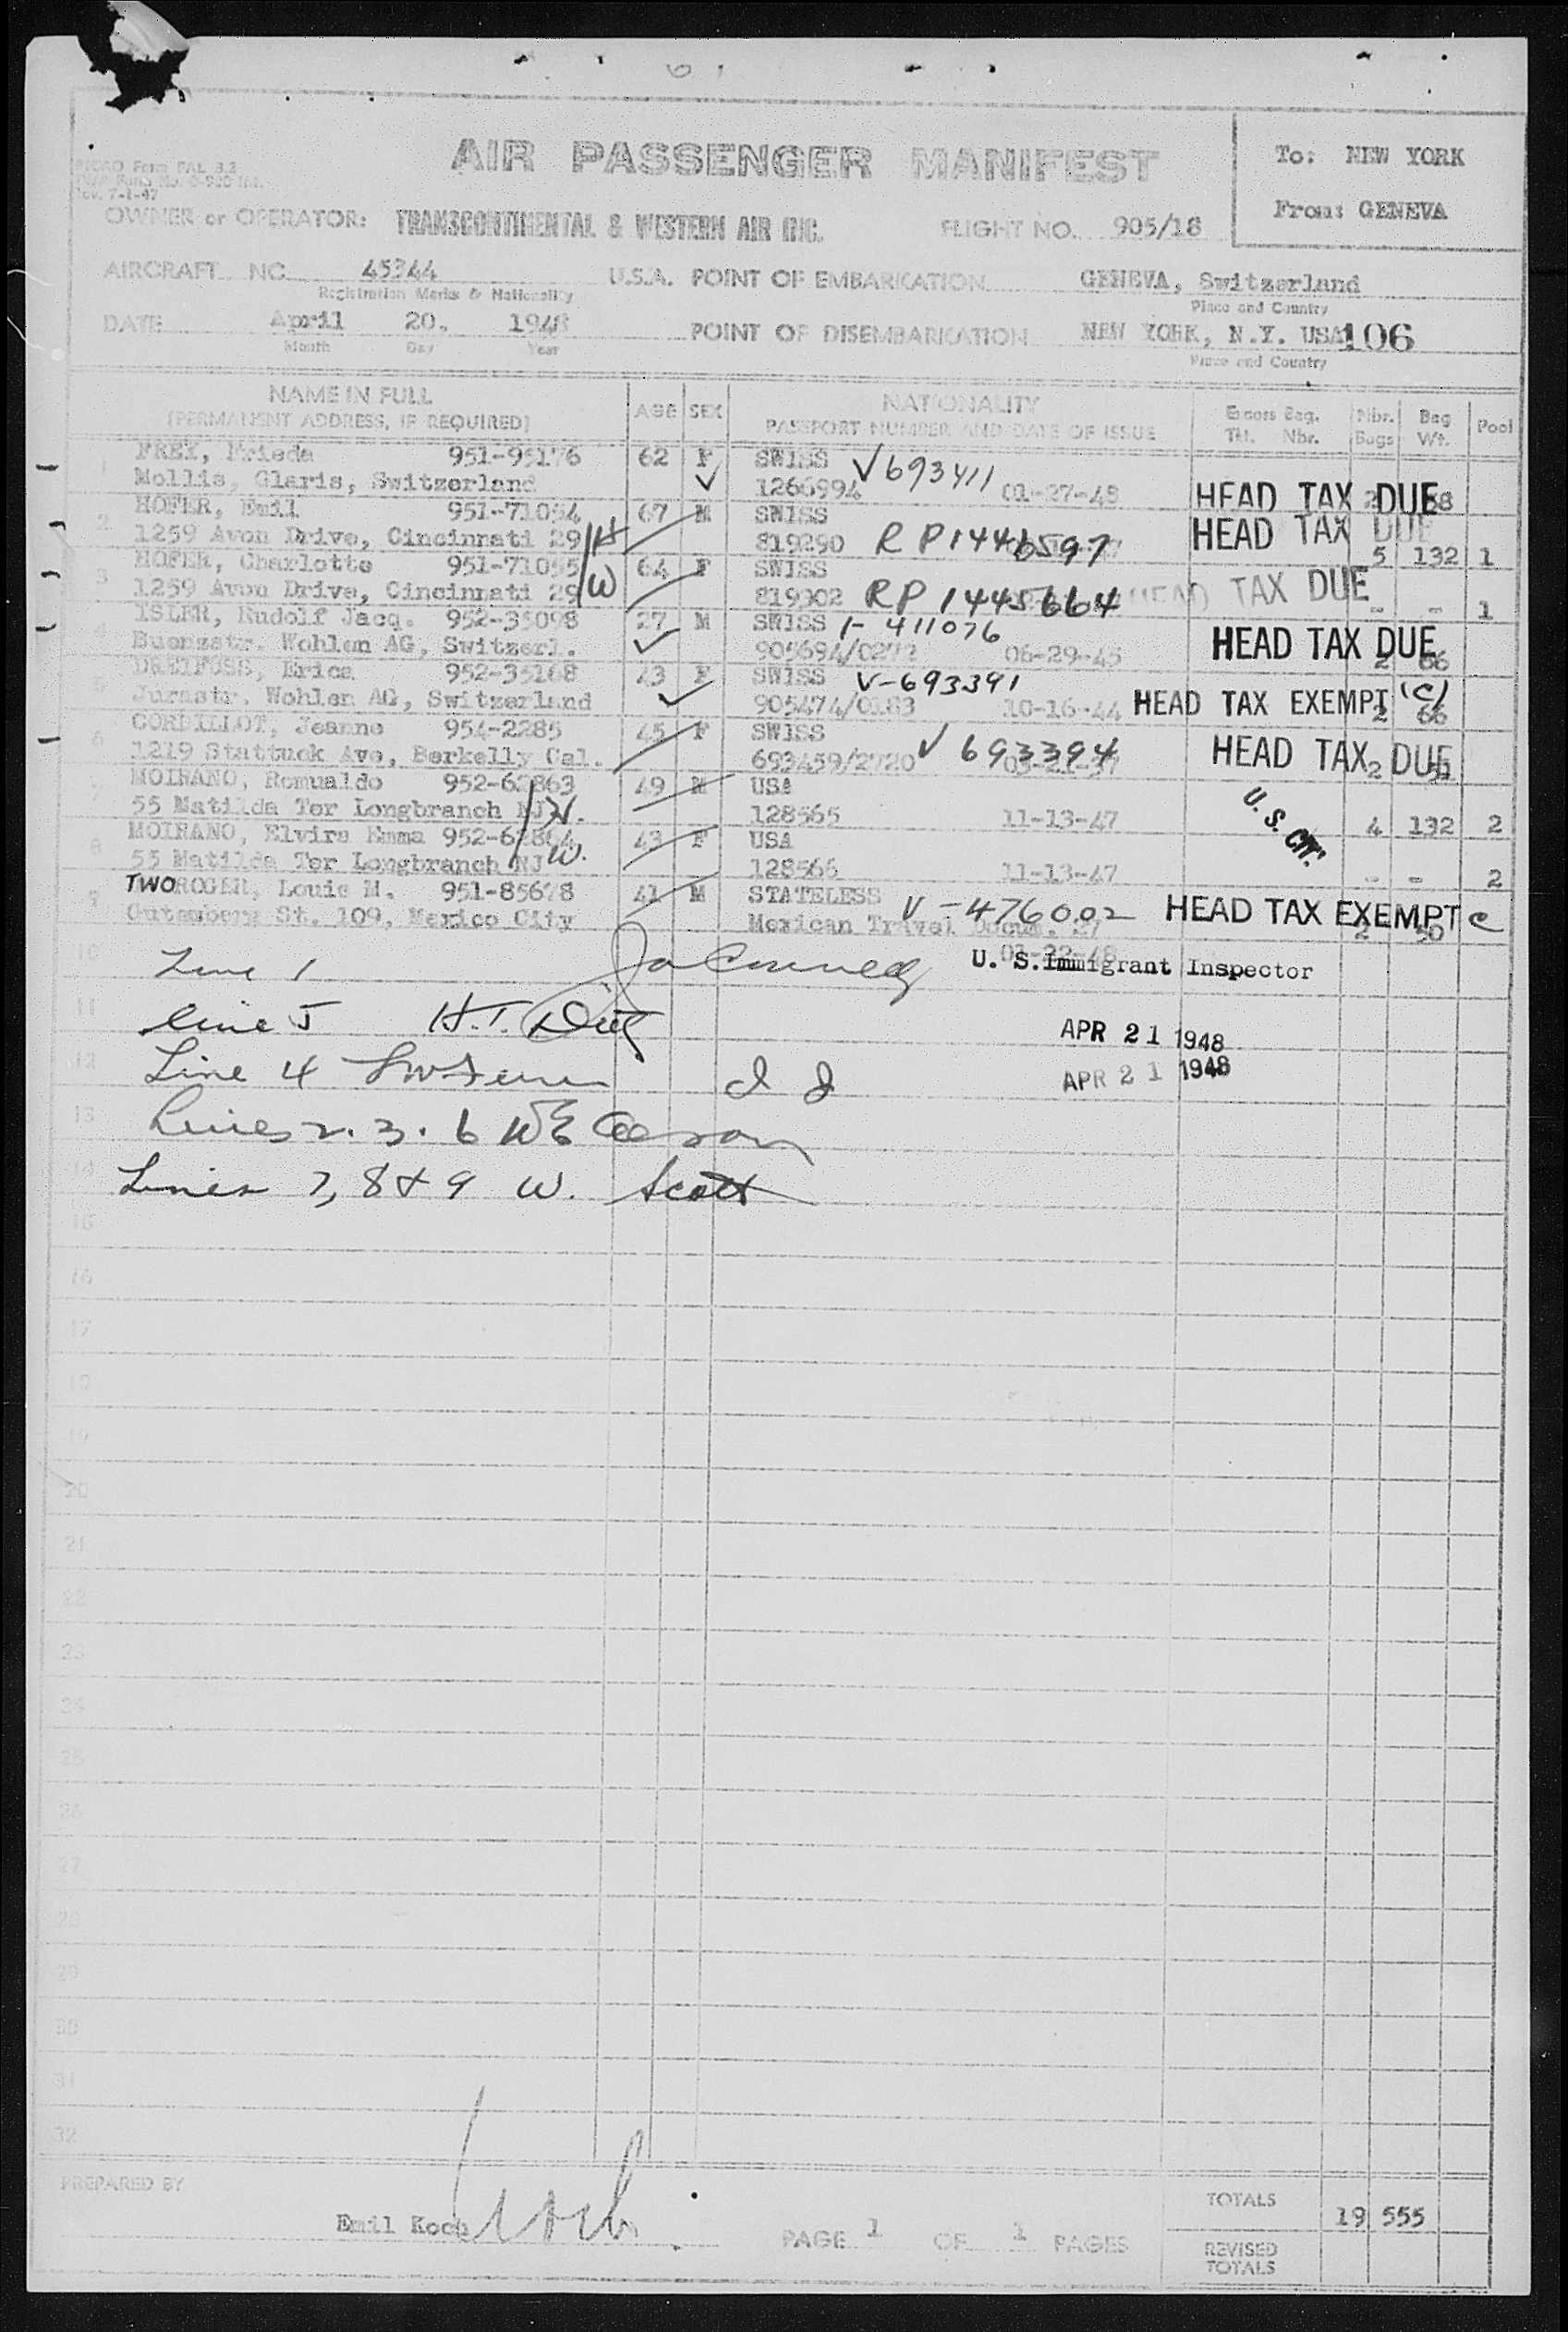 AIR PASSENGER MANIFEST
To: NEW YORK
From: GENEVA
Form FAL 3.2
7-1-47
OWNER or OPERATOR: TRANSCONTINENTAL & WESTERN AIR INC. FLIGHT NO. 905/18
AIRCRAFT NO. 45344 U.S.A. POINT OF EMBARKATION GENEVA, Switzerland
Registration Marks & Nationality Place and Country
DATE April 20, 1948 POINT OF DISEMBARKATION NEW YORK, N.Y. USA 106
Month Day Year Place and Country
NAME IN FULL AGE SEX NATIONALITY Excess Bag. Nbr. Bag Pool
(PERMANENT ADDRESS, IF REQUIRED) PASSPORT NUMBER AND DATE OF ISSUE Tkt. Nbr. Bags Wt.
1 FREY, Frieda 951-95176 62 F SWISS V693411
Mollis, Glaris, Switzerland 1266994 01-27-48 HEAD TAX DUE
2 HOFER, Emil 951-71054 67 M SWISS
1259 Avon Drive, Cincinnati 29 H 819290 RP1446597 HEAD TAX DUE 5 132 1
3 HOFER, Charlotte 951-71055 64 F SWISS
1259 Avon Drive, Cincinnati 29 W 819302 RP1445664 HEAD TAX DUE - - 1
ISLER, Rudolf Jacq. 952-35098 27 M SWISS I-411076
Buenzstr. Wohlen AG, Switzerl. 905694/0272 06-29-45 HEAD TAX DUE 2 66
DREIFUSS, Erica 952-35168 43 F SWISS V-693391
Jurastr. Wohlen AG, Switzerland 905474/0183 10-16-44 HEAD TAX EXEMPT (c) 2 66
6 CORDILLOT, Jeanne 954-2285 45 F SWISS
1219 Stattuck Ave, Berkelly Cal. 693459/2720 V693394 HEAD TAX DUE 2
MOIRANO, Romualdo 952-62863 49 M USA
55 Matilda Ter Longbranch NJ H. 128565 11-13-47 U.S. CIT. 4 132 2
8 MOIRANO, Elvira Emma 952-62864 43 F USA
55 Matilda Ter Longbranch NJ W. 128566 11-13-47 - - 2
9 TWOROGER, Louis M. 951-85678 41 M STATELESS
Gutenberg St. 109, Mexico City Mexican Travel Docum. V-476002 HEAD TAX EXEMPT c 2 50
10 Line 1 U. S. Immigrant Inspector
11 Line 5 H.T. APR 21 1948
12 Line 4 APR 21 1948
13 Lines 2. 3. 6
14 Lines 7, 8 & 9 W. Scott
15
16
17
18
19
20
21
22
23
24
25
26
27
28
29
30
31
32
PREPARED BY
Emil Koch
PAGE 1 OF 1 PAGES
TOTALS 19 555
REVISED
TOTALS